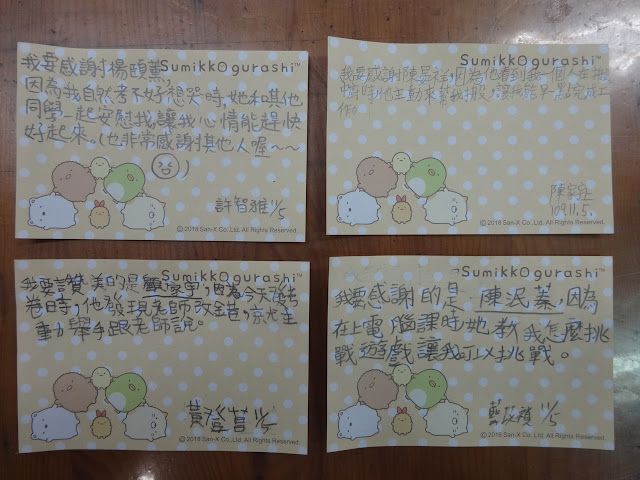 Sumikkogurashi™
我要感謝楊頤蓁,
因為我自然考不好想哭時,她和其他
同學一起安慰我,讓我心情能趕快
好起來。(也非常感謝其他人喔~~
)
許智雅 11/5
© 2018 San-X Co., Ltd. All Rights Reserved.
Sumikkogurashi™
我要感謝陳昱,因為他看到我一個人在
時,他主動來幫我,讓我能早一點完成工
作。
陳
109.11.5.
© 2018 San-X Co., Ltd. All Rights Reserved.
Sumikkogurashi™
我要讚美的是宇,因為今天發考
卷時,他發現老師改錯,就主
動舉手跟老師說。
黃登 11/5
© 2018 San-X Co., Ltd. All Rights Reserved.
Sumikkogurashi™
我要感謝的是 陳泯蓁,因為
在上電腦課時她教我怎麼挑
戰遊戲讓我可以挑戰。
11/5
© 2018 San-X Co., Ltd. All Rights Reserved.